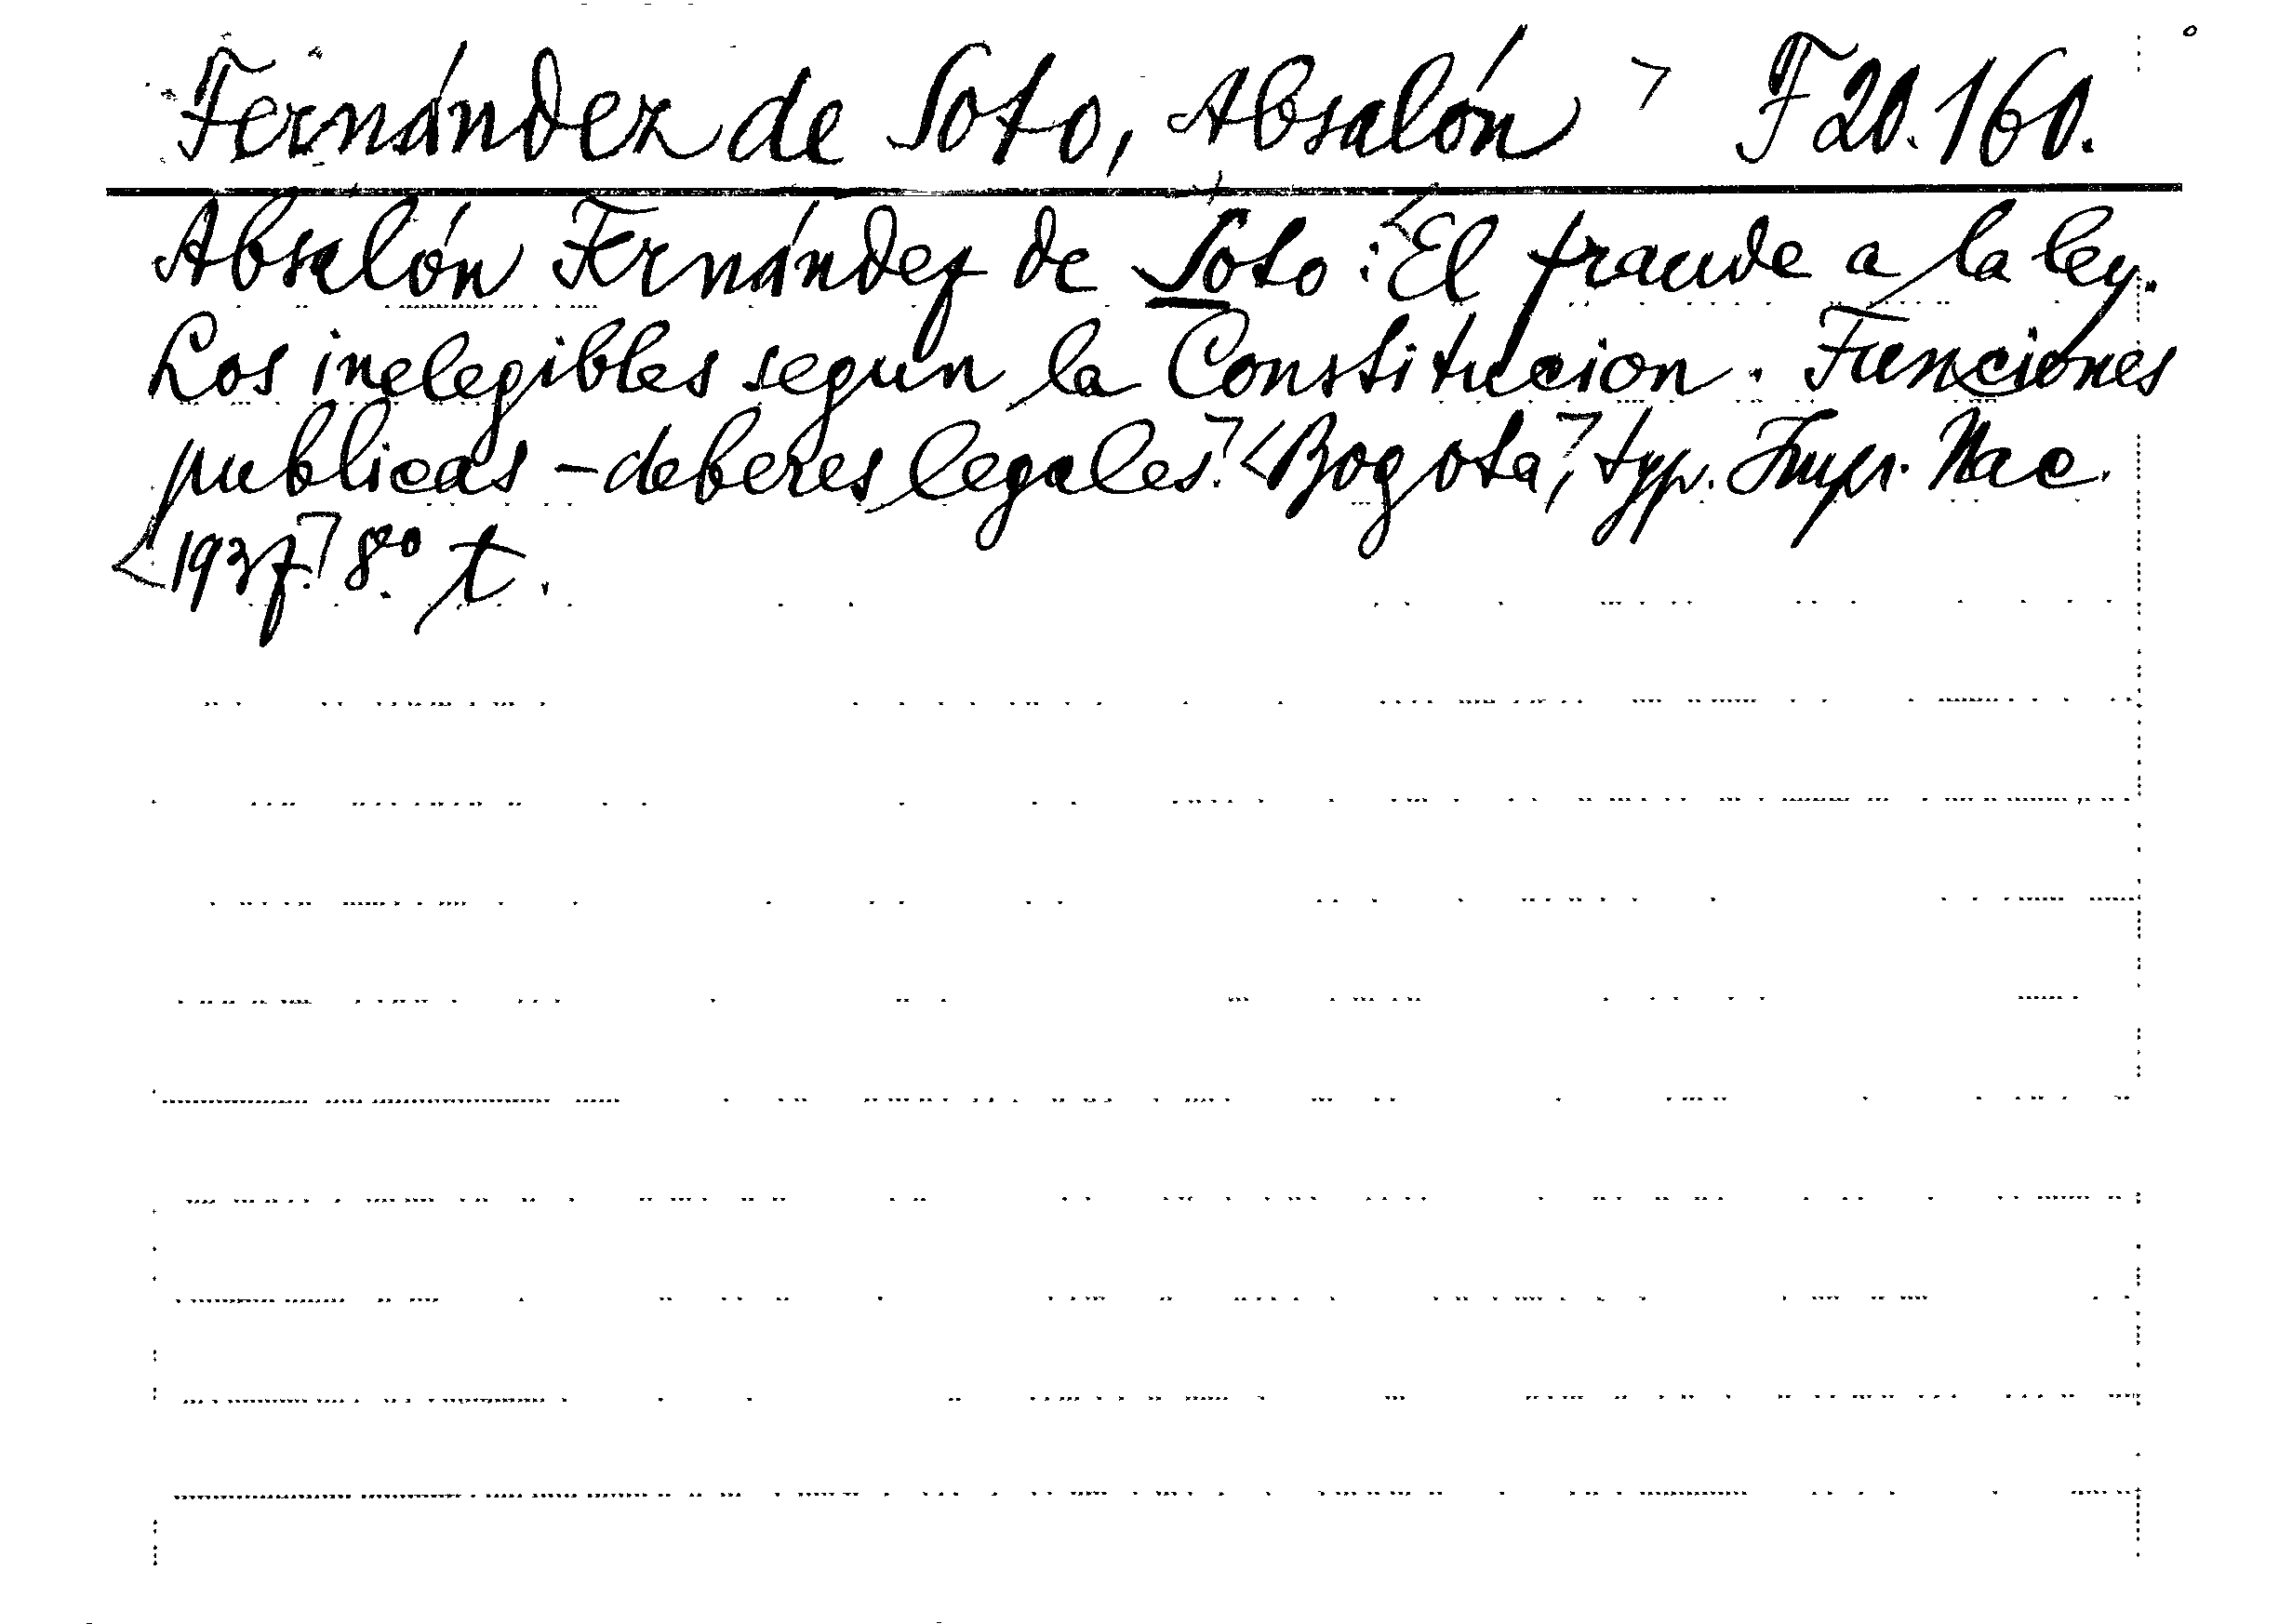 Fernández de Soto, Absalón F 20.160.
Absalón Fernández de Soto: <El fraude a la ley.
Los inelegibles segun la Constitucion. Funciones
publicas - deberes legales.> <Bogota,> typ. Impr. Nac.
<1937.> 8.º t.